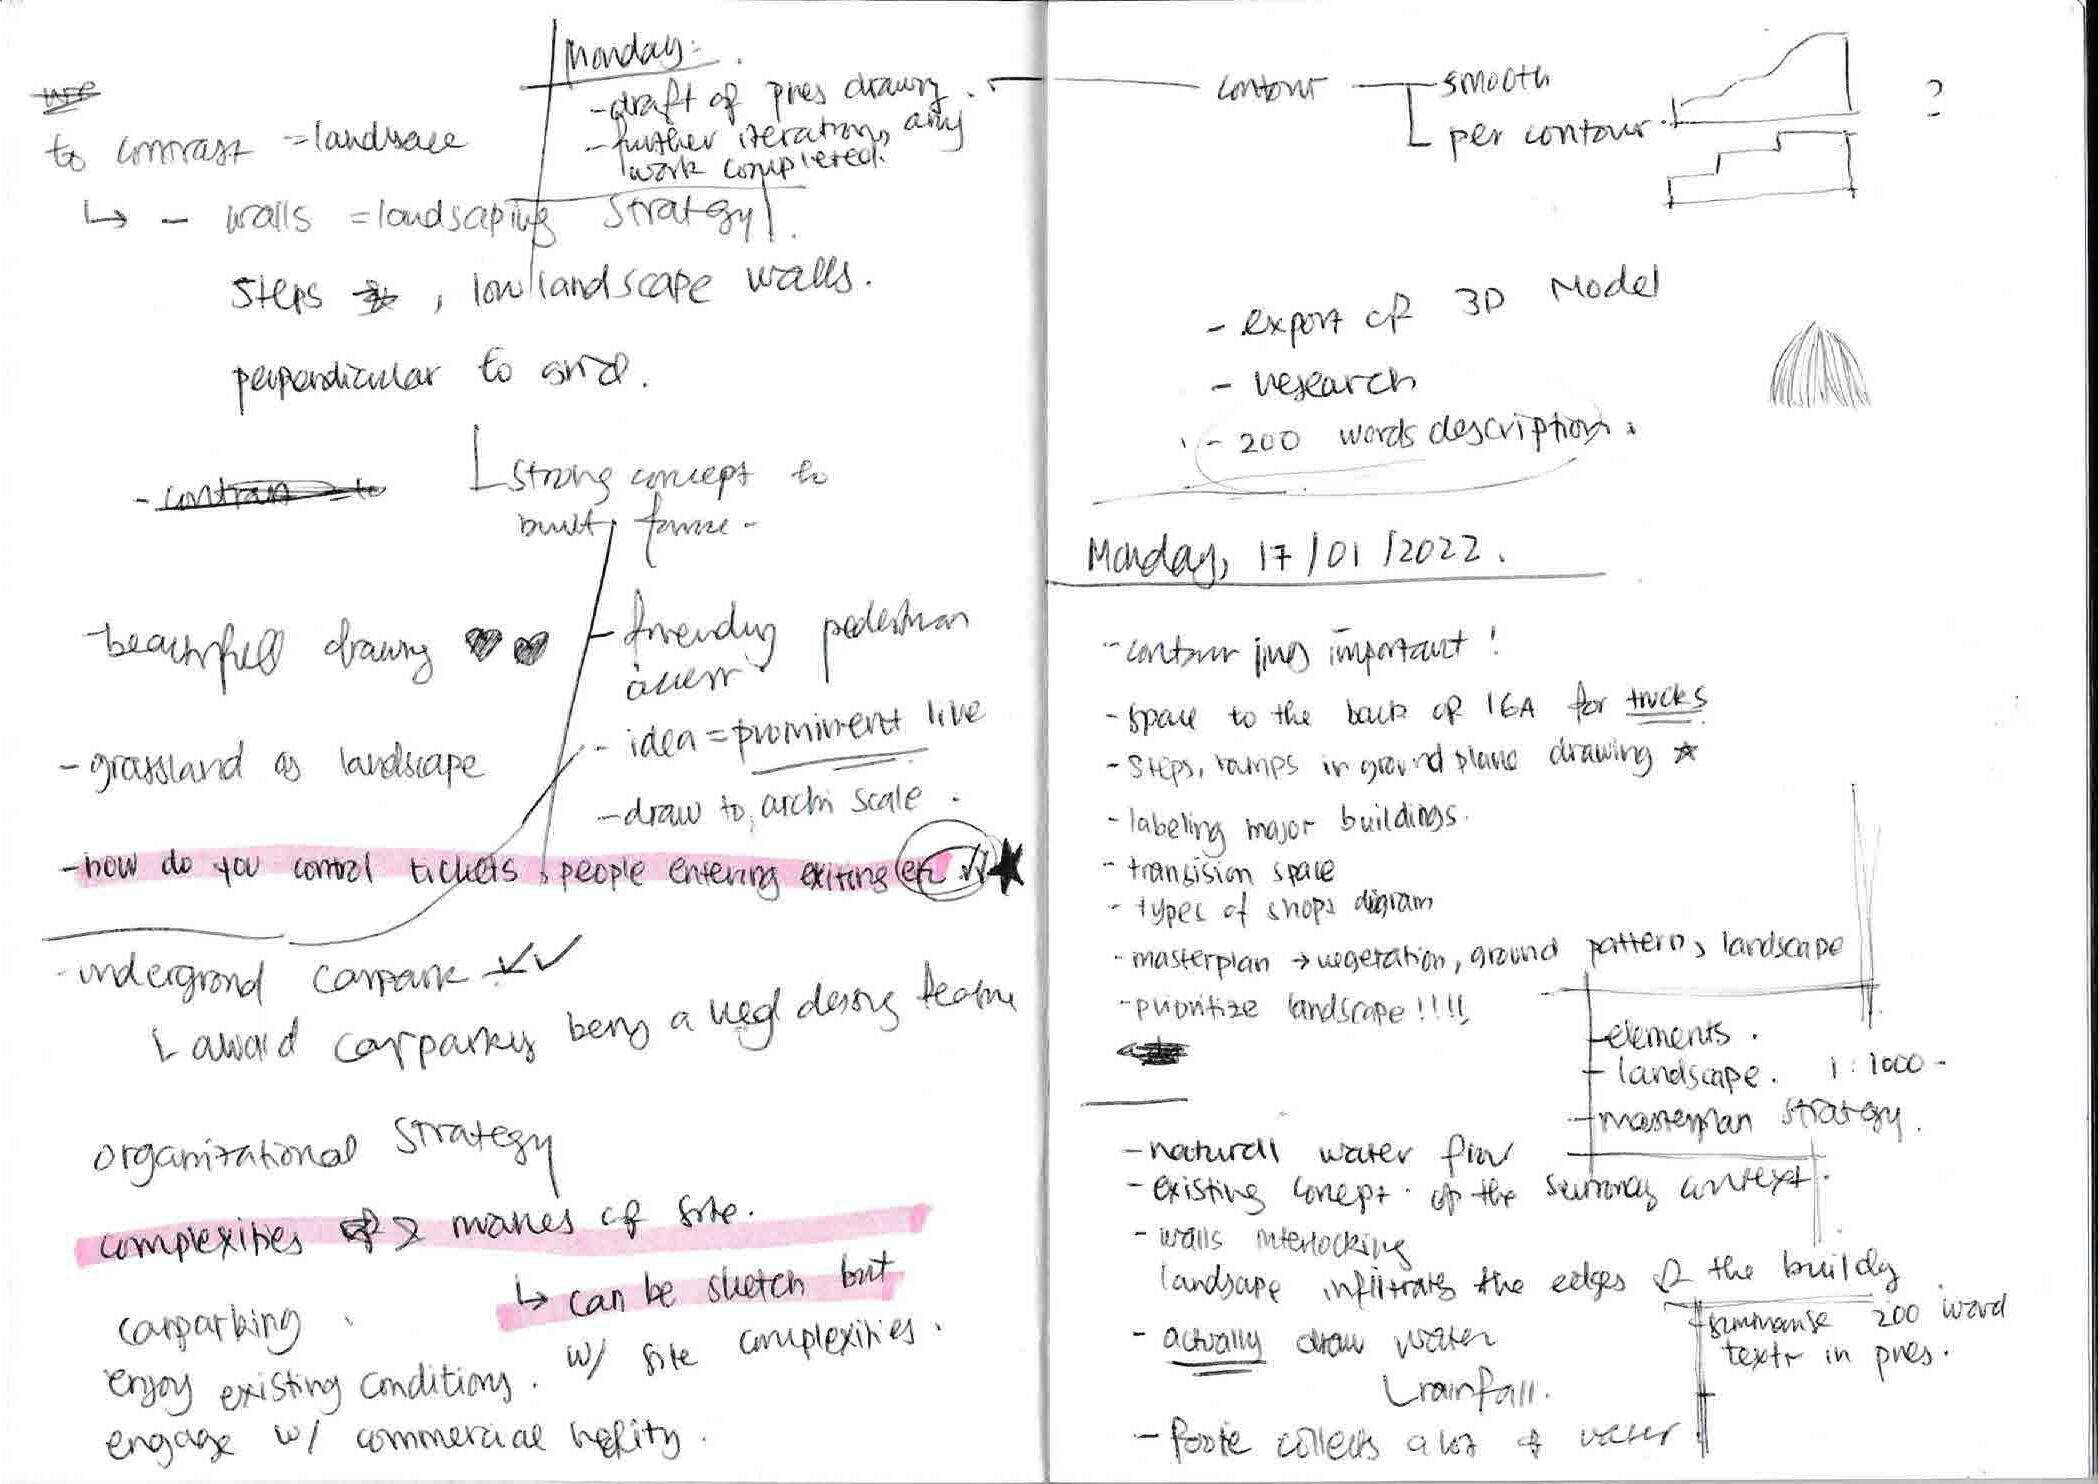 Monday:
- draft of pres drawing.
- further iterations, any
work completed.
to contrast = landscace
↳ - walls = landscaping strategy.
Steps , low landscape walls.
perpendicular to grid.
strong concept to
built
- beautifull drawing
pedestrian
access
- idea = prominent line
- grassland as landscape
- draw to archi scale.
- how do you control tickets, people entering exiting etc
- undergrond carpark
carparks being a feature
organizational strategy
complexities of of site.
↳ can be sketch but
w/ site complexities.
carparking
enjoy existing conditions.
engage w/ commercial
contour
smooth
per contour.
?
- export of 3D Model
- research
- 200 words description.
Monday, 17/01/2022.
- contour important!
- space to the back of 16A for trucks
- steps, ramps in ground plane drawing
- labeling major buildings.
- transision space
- types of shops digram
- masterplan → vegetation, ground pattern, landscape
- prioritize landscape!!!!
- elements.
- landscape. 1:1000 -
- masterplan strategy.
- naturall water flow
- existing concept of the context.
- walls interlocking
landsape infiltrates the edges of the buildg
- actually draw water
rainfall.
summarise 200 word
text in pres.
- collects a lot of water